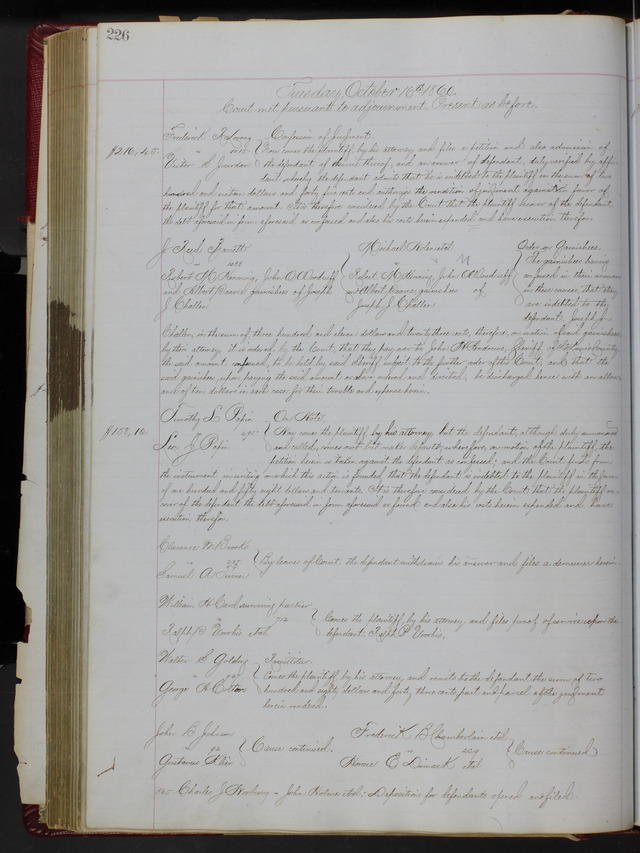 226
Tuesday, October 16th 1860.
Court met pursuant to adjournment. Present as before.
Frederick Confession of Judgment.
$216,45. Now comes the plaintiff, by his attorney and files a petition and also admission of
Victor S. Jourdan the defendant of thereof, and an answer of defendant, duly verified by affi-
davit whereby the defendant admits that he is indebted to the plaintiff in the sum of two
hundred and sixteen dollars and forty five cents and authorizes the rendition of judgment against him in favor of
the plaintiff for that amount. It is therefore considered by the Court that the plaintiff recover of the defendant
the debt aforesaid in form aforesaid so confessed and also his costs herein expended, and have execution therefor.
J. Fred Michael et al Order on Garnishees.
The garnishees having
Robert M. Henning, John O. Woodruff Robert M. Henning, John O. Woodruff confessed in their answers
and Albert Pearce garnishees of Joseph Albert Pearce garnishees of in these causes, that they
J. Challen Joseph J. Challen are indebted to the
defendant, Joseph J.
Challen, in the sum of three hundred and eleven dollars and twenty three cents, therefore, on motion of said garnishees,
by their attorney, it is ordered by the Court, that they pay over to John H. Andrews, Sheriff of St. Louis County,
the said amount confessed, to be held by said Sheriff subject to the further order of the Court; and that the
said garnishees upon paying the said amount as above ordered and directed, be discharged hence with an allow-
ance of ten dollars in each case for their trouble and expense herein.
Timothy L. Papin On Note.
$158,10. 490 Now comes the plaintiff by his attorney, but the defendant, although duly summoned
J. Papin and called, comes not but makes default; wherefore, on motion of the plaintiff, the
petition herein is taken against the defendant as confessed; and the Court finds from
the instrument in writing on which this action is founded, that the defendant is indebted to the plaintiff in the sum
of one hundred and fifty eight dollars and ten cents. It is therefore considered by the Court that the plaintiff re-
cover of the defendant the debt aforesaid in form aforesaid so found and also his costs herein expended and have
execution therefor.
Clarence W. Brooks
By leave of Court the defendant withdraws his answer and files a demurrer herein.
Samuel A.
William H. Card, surviving partner
712 Comes the plaintiff, by his attorney, and files proof of service upon the
Ralph P. Voorhis et al. defendant, Ralph P. Voorhis.
Walter S. Golding Remittitur.
Comes the plaintiff, by his attorney, and remits to the defendant the sum of two
George H. Colton hundred and eighty dollars and forty three cents, part and parcel of the judgment
herein rendered.
John B. Johnson Frederick B. Chamberlain et al
92 Cause continued. Cause continued.
Gustavus Horace E. Dimick et al
Charles J. John Holmes et al: Depositions for defendants opened and filed.